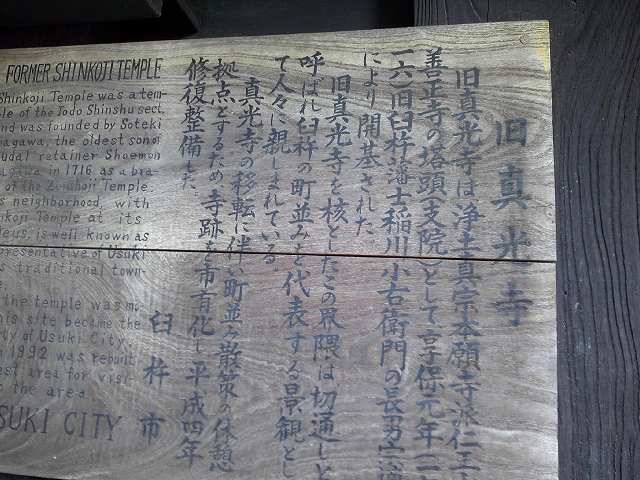 旧真光寺
旧真光寺は、浄土真宗本願寺派仁王
善正寺の塔頭(支院)として、享保元年(一七
一六)旧臼杵藩士稲川小右衛門の長男
により開基された。
旧真光寺を核としたこの界隈は、切通しと
呼ばれ臼杵の町並みを代表する景観とし
て人々に親しまれている。
真光寺の移転に伴い町並み散策の休憩
拠点とするため、寺跡を市有化し平成四年
修復整備した。
臼杵市
FORMER SHINKOJI TEMPLE
Shinkoji Temple was a tem-
ple of the Jodo Shinshu sect
and was founded by Soteki
nagawa, the oldest son of
udal retainer Shoemon
agawa in 1716 as a bra-
of the Zenshoji Temple.
s neighborhood, with
nkoji Temple at its
leus, is well known as
epresentative of Usuki
s traditional town-
e.
the temple was mo-
his site became the
ty of Usuki City.
n 1992 was rebuilt
est area for visi-
e the area.
SUKI CITY